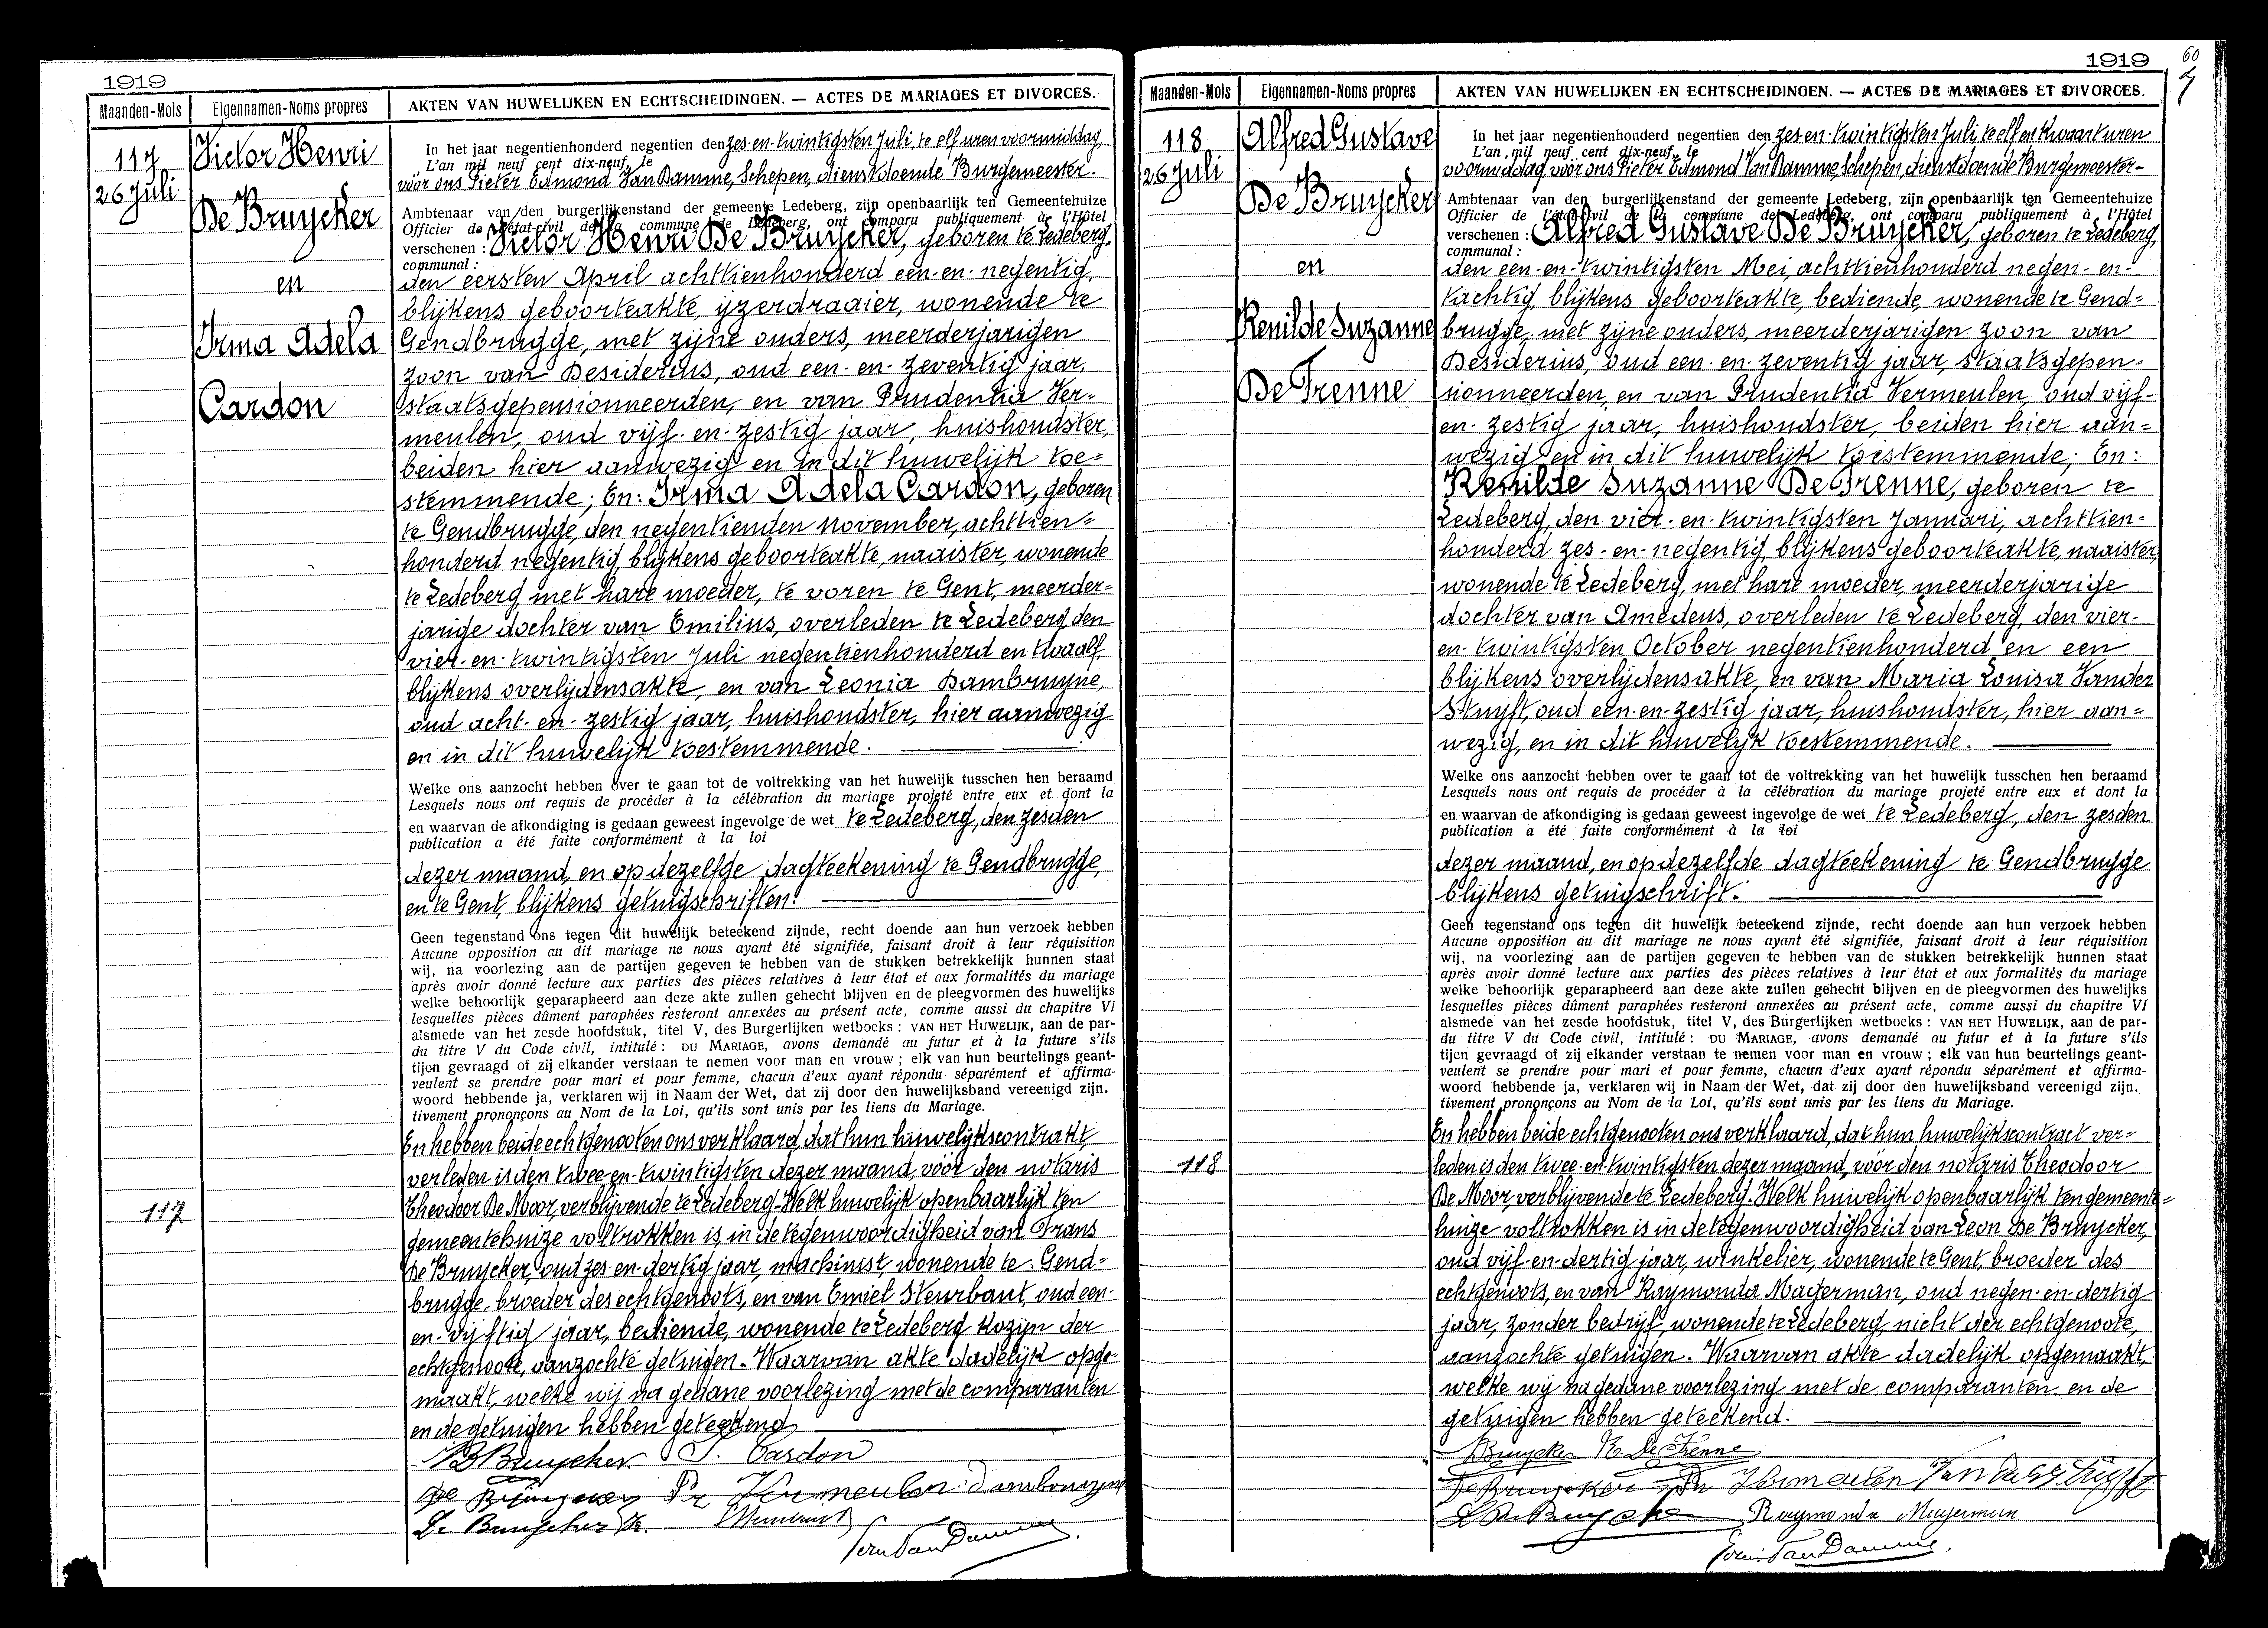 1919
Maanden-Mois
Eigennamen-Noms propres
AKTEN VAN HUWELIJKEN EN ECHTSCHEIDINGEN. — ACTES DE MARIAGES ET DIVORCES.
117
26 Juli
Victor Henri
De Bruycker
en
Irma Adela
Cardon
In het jaar negentienhonderd negentien den zes-en-twintigsten Juli, te elf uren voormiddag,
L'an mil neuf cent dix-neuf, le
vóór ons Pieter Edmond Van Damme, Schepen, dienstdoende Burgemeester.
Ambtenaar van den burgerlijkenstand der gemeente Ledeberg, zijn openbaarlijk ten Gemeentehuize
Officier de l'état-civil de la commune de Ledeberg, ont comparu publiquement à l'Hôtel
verschenen : Victor Henri De Bruycker, geboren te Ledeberg,
communal :
den eersten April achttienhonderd een-en-negentig,
blijkens geboorteakte, ijzerdraaier, wonende te
Gendbrugge, met zijne ouders, meerderjarigen
zoon van Desiderius, oud een-en-zeventig jaar,
staatsgepensionneerden, en van Prudentia Ver-
meulen, oud vijf-en-zestig jaar, huishoudster,
beiden hier aanwezig en in dit huwelijk toe=
stemmende; En: Irma Adela Cardon, geboren
te Gendbrugge, den negentienden November, achttien=
honderd negentig, blijkens geboorteakte, naaister, wonende
te Ledeberg, met hare moeder, te voren te Gent, meerder=
jarige dochter van Emilius, overleden te Ledeberg, den
vier-en-twintigsten Juli negentienhonderd en twaalf,
blijkens overlijdensakte, en van Leonia Dambruyne,
oud acht-en-zestig jaar, huishoudster, hier aanwezig
en in dit huwelijk toestemmende.
Welke ons aanzocht hebben over te gaan tot de voltrekking van het huwelijk tusschen hen beraamd
Lesquels nous ont requis de procéder à la célébration du mariage projeté entre eux et dont la
en waarvan de afkondiging is gedaan geweest ingevolge de wet te Ledeberg, den zesden
publication a été faite conformément à la loi
dezer maand, en op dezelfde dagteekening te Gendbrugge,
en te Gent, blijkens getuigschriften.
Geen tegenstand ons tegen dit huwelijk beteekend zijnde, recht doende aan hun verzoek hebben
Aucune opposition au dit mariage ne nous ayant été signifiée, faisant droit à leur réquisition
wij, na voorlezing aan de partijen gegeven te hebben van de stukken betrekkelijk hunnen staat
après avoir donné lecture aux parties des pièces relatives à leur état et aux formalités du mariage
welke behoorlijk geparapheerd aan deze akte zullen gehecht blijven en de pleegvormen des huwelijks
lesquelles pièces dûment paraphées resteront annexées au présent acte, comme aussi du chapitre VI
alsmede van het zesde hoofdstuk, titel V, des Burgerlijken wetboeks : VAN HET HUWELIJK, aan de par-
du titre V du Code civil, intitulé : DU MARIAGE, avons demandé au futur et à la future s'ils
tijen gevraagd of zij elkander verstaan te nemen voor man en vrouw ; elk van hun beurtelings geant-
veulent se prendre pour mari et pour femme, chacun d'eux ayant répondu séparément et affirma-
woord hebbende ja, verklaren wij in Naam der Wet, dat zij door den huwelijksband vereenigd zijn.
tivement prononçons au Nom de la Loi, qu'ils sont unis par les liens du Mariage.
En hebben beide echtgenooten ons verklaard, dat hun huwelijkscontrakt
verleden is den twee-en-twintigsten dezer maand, vóór den notaris
117
Theodoor De Moor, verblijvende te Ledeberg. Welk huwelijk openbaarlijk ten
gemeentehuize voltrokken is, in de tegenwoordigheid van Frans
De Bruycker, oud zes-en-dertig jaar, machinist, wonende te Gend=
brugge, broeder des echtgenoots, en van Emiel Steurbaut, oud een-
en-vijftig jaar, bediende, wonende te Ledeberg kozijn der
echtgenoote, aanzochte getuigen. Waarvan akte dadelijk opge=
maakt, welke wij na gedane voorlezing met de comparanten
en de getuigen hebben geteekend
V De Bruycker I. Cardon
De Bruycker Pr Vermeulen Dambruyne
De Bruycker Fr. Steurbaut
Edm Van Damme
1919
60
Maanden-Mois
Eigennamen-Noms propres
AKTEN VAN HUWELIJKEN EN ECHTSCHEIDINGEN. — ACTES DE MARIAGES ET DIVORCES.
118
26 Juli
Alfred Gustave
De Bruycker
en
Renilde Suzanne
De Frenne
In het jaar negentienhonderd negentien den zes-en-twintigsten Juli, te elf en kwaart uren
L'an mil neuf cent dix-neuf, le
voormiddag, vóór ons Pieter Edmond Van Damme, Schepen, dienstdoende Burgemeester-
Ambtenaar van den burgerlijkenstand der gemeente Ledeberg, zijn openbaarlijk ten Gemeentehuize
Officier de l'état-civil de la commune de Ledeberg, ont comparu publiquement à l'Hôtel
verschenen : Alfred Gustave De Bruycker, geboren te Ledeberg,
communal :
den een-en-twintigsten Mei, achttienhonderd negen-en-
tachtig, blijkens geboorteakte, bediende, wonende te Gend=
brugge, met zijne ouders, meerderjarigen zoon van
Desiderius, oud een-en-zeventig jaar, staatsgepen=
sionneerden, en van Prudentia Vermeulen, oud vijf-
en-zestig jaar, huishoudster, beiden hier aan=
wezig en in dit huwelijk toestemmende; En:
Renilde Suzanne De Frenne, geboren te
Ledeberg, den vier-en-twintigsten Januari, achttien=
honderd zes-en-negentig, blijkens geboorteakte, naaister,
wonende te Ledeberg, met hare moeder, meerderjarige
dochter van Amedeus, overleden te Ledeberg, den vier-
en-twintigsten October negentienhonderd en een
blijkens overlijdensakte, en van Maria Louisa Vander
Stuyft, oud een-en-zestig jaar, huishoudster, hier aan=
wezig, en in dit huwelijk toestemmende.
Welke ons aanzocht hebben over te gaan tot de voltrekking van het huwelijk tusschen hen beraamd
Lesquels nous ont requis de procéder à la célébration du mariage projeté entre eux et dont la
en waarvan de afkondiging is gedaan geweest ingevolge de wet te Ledeberg, den zesden
publication a été faite conformément à la loi
dezer maand, en op dezelfde dagteekening te Gendbrugge
blijkens getuigschrift.
Geen tegenstand ons tegen dit huwelijk beteekend zijnde, recht doende aan hun verzoek hebben
Aucune opposition au dit mariage ne nous ayant été signifiée, faisant droit à leur réquisition
wij, na voorlezing aan de partijen gegeven te hebben van de stukken betrekkelijk hunnen staat
après avoir donné lecture aux parties des pièces relatives à leur état et aux formalités du mariage
welke behoorlijk geparapheerd aan deze akte zullen gehecht blijven en de pleegvormen des huwelijks
lesquelles pièces dûment paraphées resteront annexées au présent acte, comme aussi du chapitre VI
alsmede van het zesde hoofdstuk, titel V, des Burgerlijken wetboeks : VAN HET HUWELIJK, aan de par-
du titre V du Code civil, intitulé : DU MARIAGE, avons demandé au futur et à la future s'ils
tijen gevraagd of zij elkander verstaan te nemen voor man en vrouw ; elk van hun beurtelings geant-
veulent se prendre pour mari et pour femme, chacun d'eux ayant répondu séparément et affirma-
woord hebbende ja, verklaren wij in Naam der Wet, dat zij door den huwelijksband vereenigd zijn.
tivement prononçons au Nom de la Loi, qu'ils sont unis par les liens du Mariage.
En hebben beide echtgenooten ons verklaard, dat hun huwelijkscontract ver=
118
leden is den twee-en-twintigsten dezer maand, vóór den notaris Theodoor
De Moor, verblijvende te Ledeberg. Welk huwelijk openbaarlijk ten gemeente=
huize voltrokken is in de tegenwoordigheid van Leon De Bruycker,
oud vijf-en-dertig jaar, winkelier, wonende te Gent, broeder des
echtgenoots, en van Raymonda Magerman, oud negen-en-dertig
jaar, zonder bedrijf, wonende te Ledeberg, nicht der echtgenoote,
aanzochte getuigen. Waarvan akte dadelijk opgemaakt,
welke wij na gedane voorlezing met de comparanten en de
getuigen hebben geteekend.
DBruycker R. De Frenne
De Bruycker Pr Vermeulen Van der Stuyft
L De Bruycker Raymonda Magerman
Edm. Van Damme.